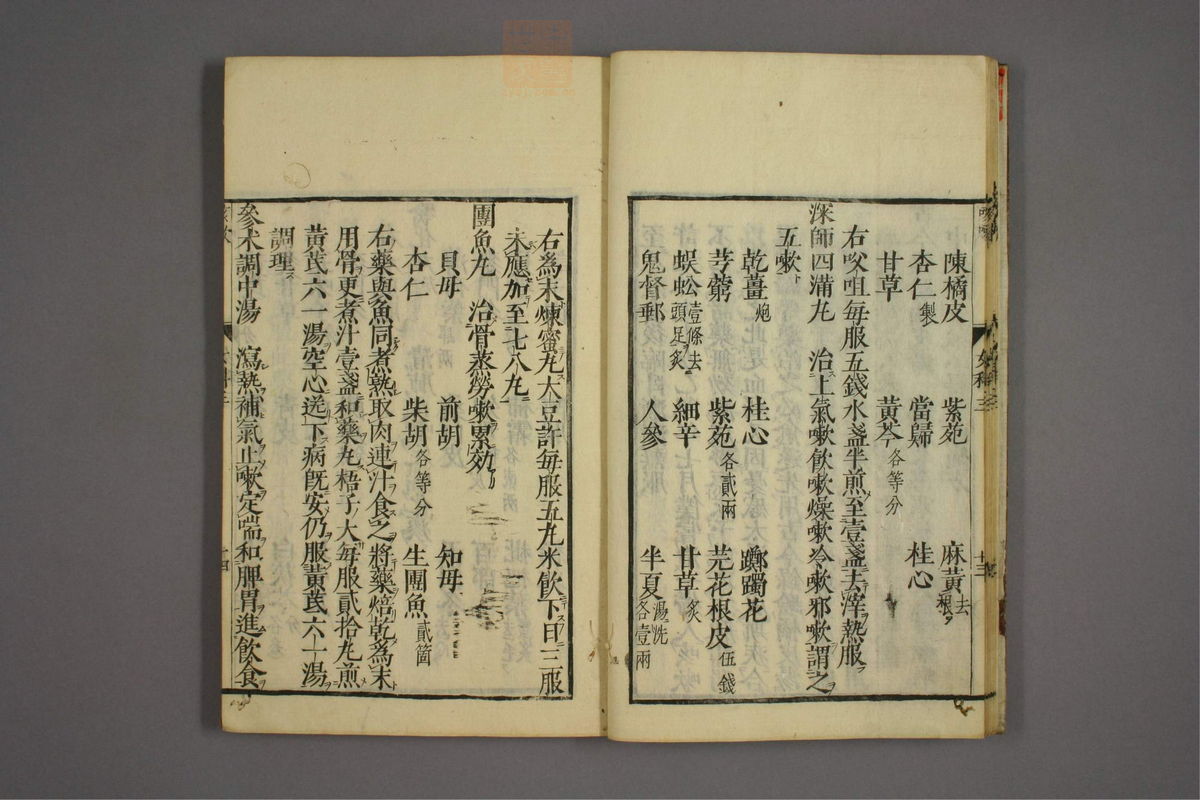 陳橘皮　紫菀　麻黃去根
杏仁製　當歸　桂心
甘草　黃芩各等分
右㕮咀每服五錢水盞半煎至壹盞去滓熱服
深師四滿丸　治上氣嗽飲嗽燥嗽冷嗽邪嗽謂之
五嗽
乾薑炮　桂心　躑躅花
芎藭　紫菀各貳兩　芫花根皮伍錢
蜈蚣壹條去頭足炙　細辛　甘草炙
鬼督郵　人參　半夏湯洗各壹兩
右為末煉蜜丸大豆許每服五丸米飲下日三服
未應加至七八丸
團魚丸　治骨蒸勞嗽累効
貝母　前胡　知母
杏仁　柴胡各等分　生團魚貳箇
右藥與魚同煮熟取肉連汁食之將藥焙乾為末
用骨更煮汁壹盞和藥丸梧子大每服貳拾丸煎
黃芪六一湯空心送下病既安仍服黃芪六一湯
調理
參朮調中湯　瀉熱補氣止嗽定喘和脾胃進飲食